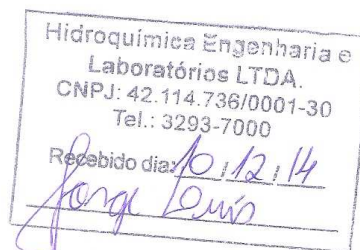 Hidroquímica Engenharia e
Laboratórios LTDA.
CNPJ: 42.114.736/0001-30
Tel.: 3293-7000
Recebido dia: 10 / 12 / 14
Jorge Luis